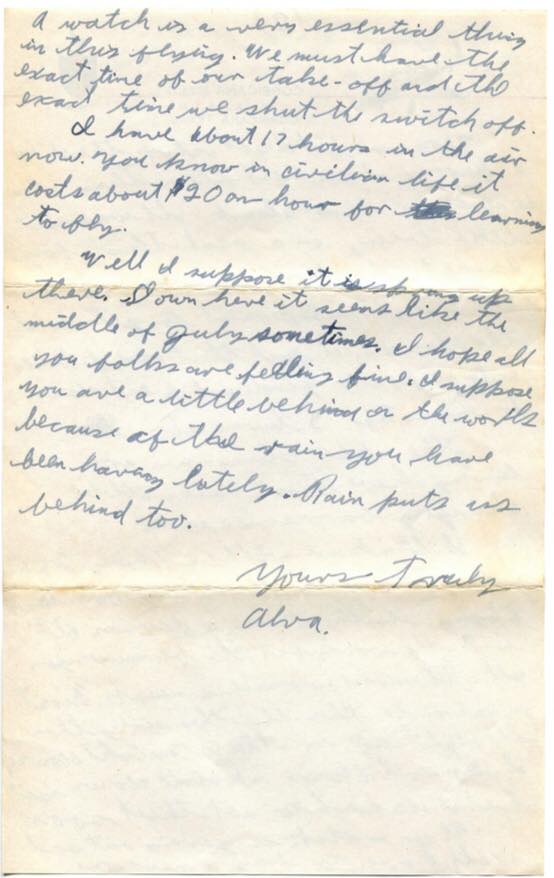 A watch is a very essential thing
in this flying. We must have the
exact time of our take-off and the
exact time we shut the switch off.
I have about 17 hours in the air
now. You know in civilian life it
costs about $20 an hour for learning
to fly.
Well I suppose it is spring up
there. Down here it seems like the
middle of July sometimes. I hope all
you folks are feeling fine. I suppose
you are a little behind on the work
because of the rain you have
been having lately. Rain puts us
behind too.
Yours Truly
Alva.